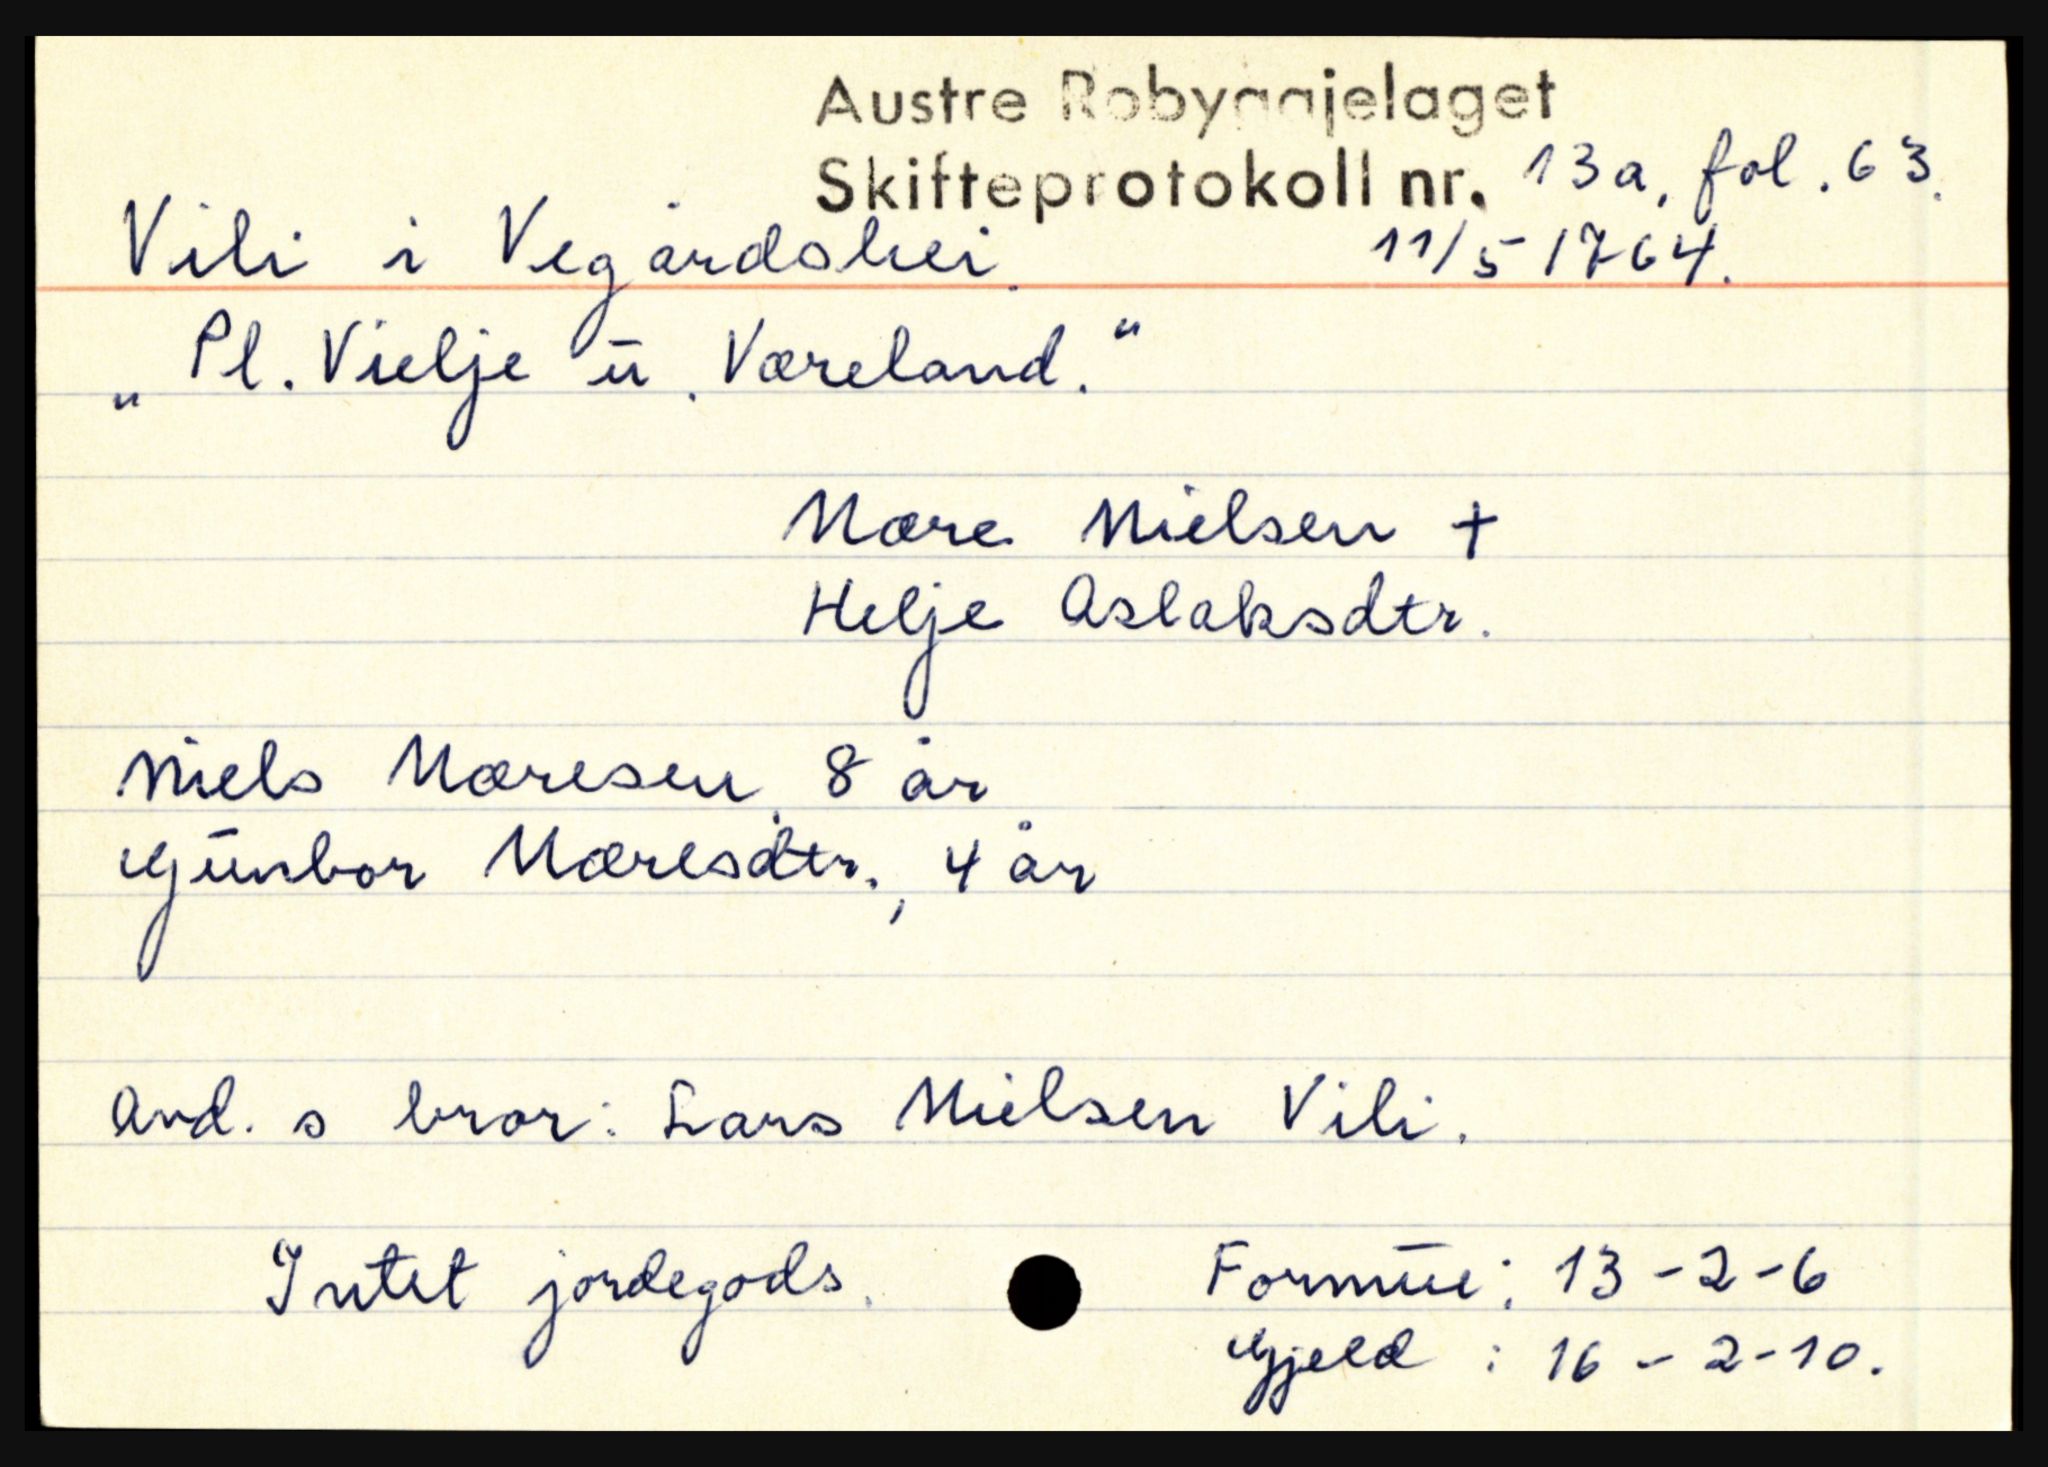 Austre Robyggjelaget
Skifteprotokoll nr. 13a, fol. 63.
Vili i Vegårdshei. 11/5 1764.
„Pl. Vielje u. Væreland."
Mære Nielsen +
Helje Aslaksdtr.
Niels Mæresen, 8 år
Gunbor Mæresdtr., 4 år
Avd. s bror: Lars Nielsen Vili.
Intet jordegods.
Formue: 13-2-6
Gjeld : 16-2-10.